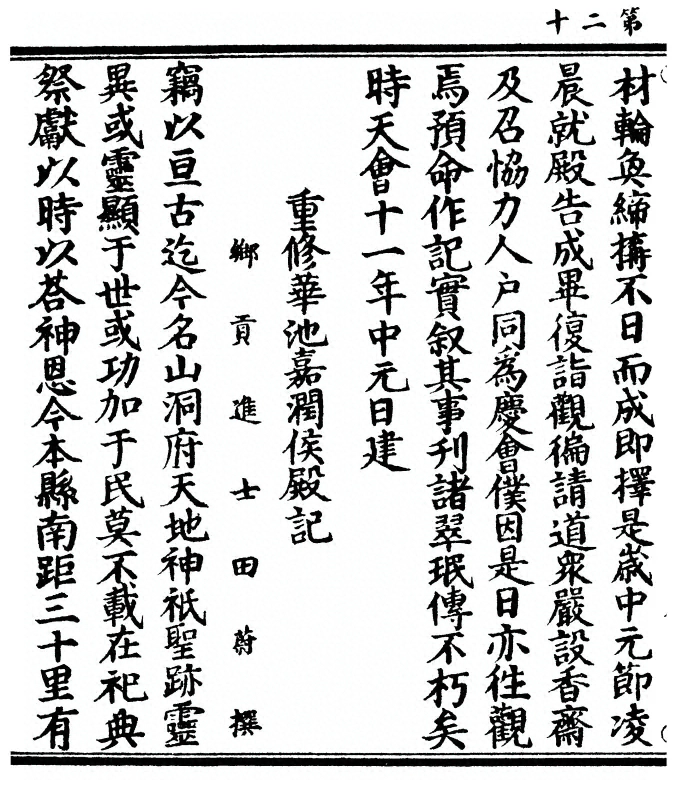 第二十
材輪奐締構不日而成即擇是歲中元節凌
晨就殿告成畢復詣觀徧請道眾嚴設香齋
及召恊力人户同為慶會僕因是日亦徃觀
焉預命作記實叙其事刋諸翠珉傳不朽矣
時天會十一年中元日建
重修華池嘉潤侯殿記
鄉貢進士田蔚撰
竊以亘古迄今名山洞府天地神祇聖跡靈
異或靈顯于世或功加于民莫不載在祀典
祭獻以時以荅神恩今本縣南距三十里有